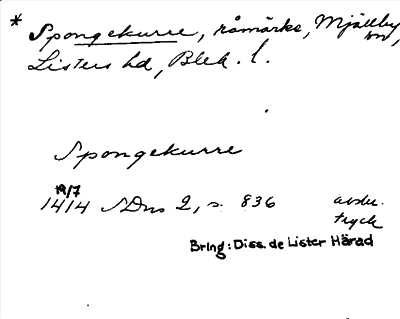 * Spongekurre, råmärke, Mjällby sn,
Listers hd, Blek. l.
Spongekurre
19/7
1414 SDns 2, s. 836 avskr.
tryck
Bring: Diss. de Lister Härad